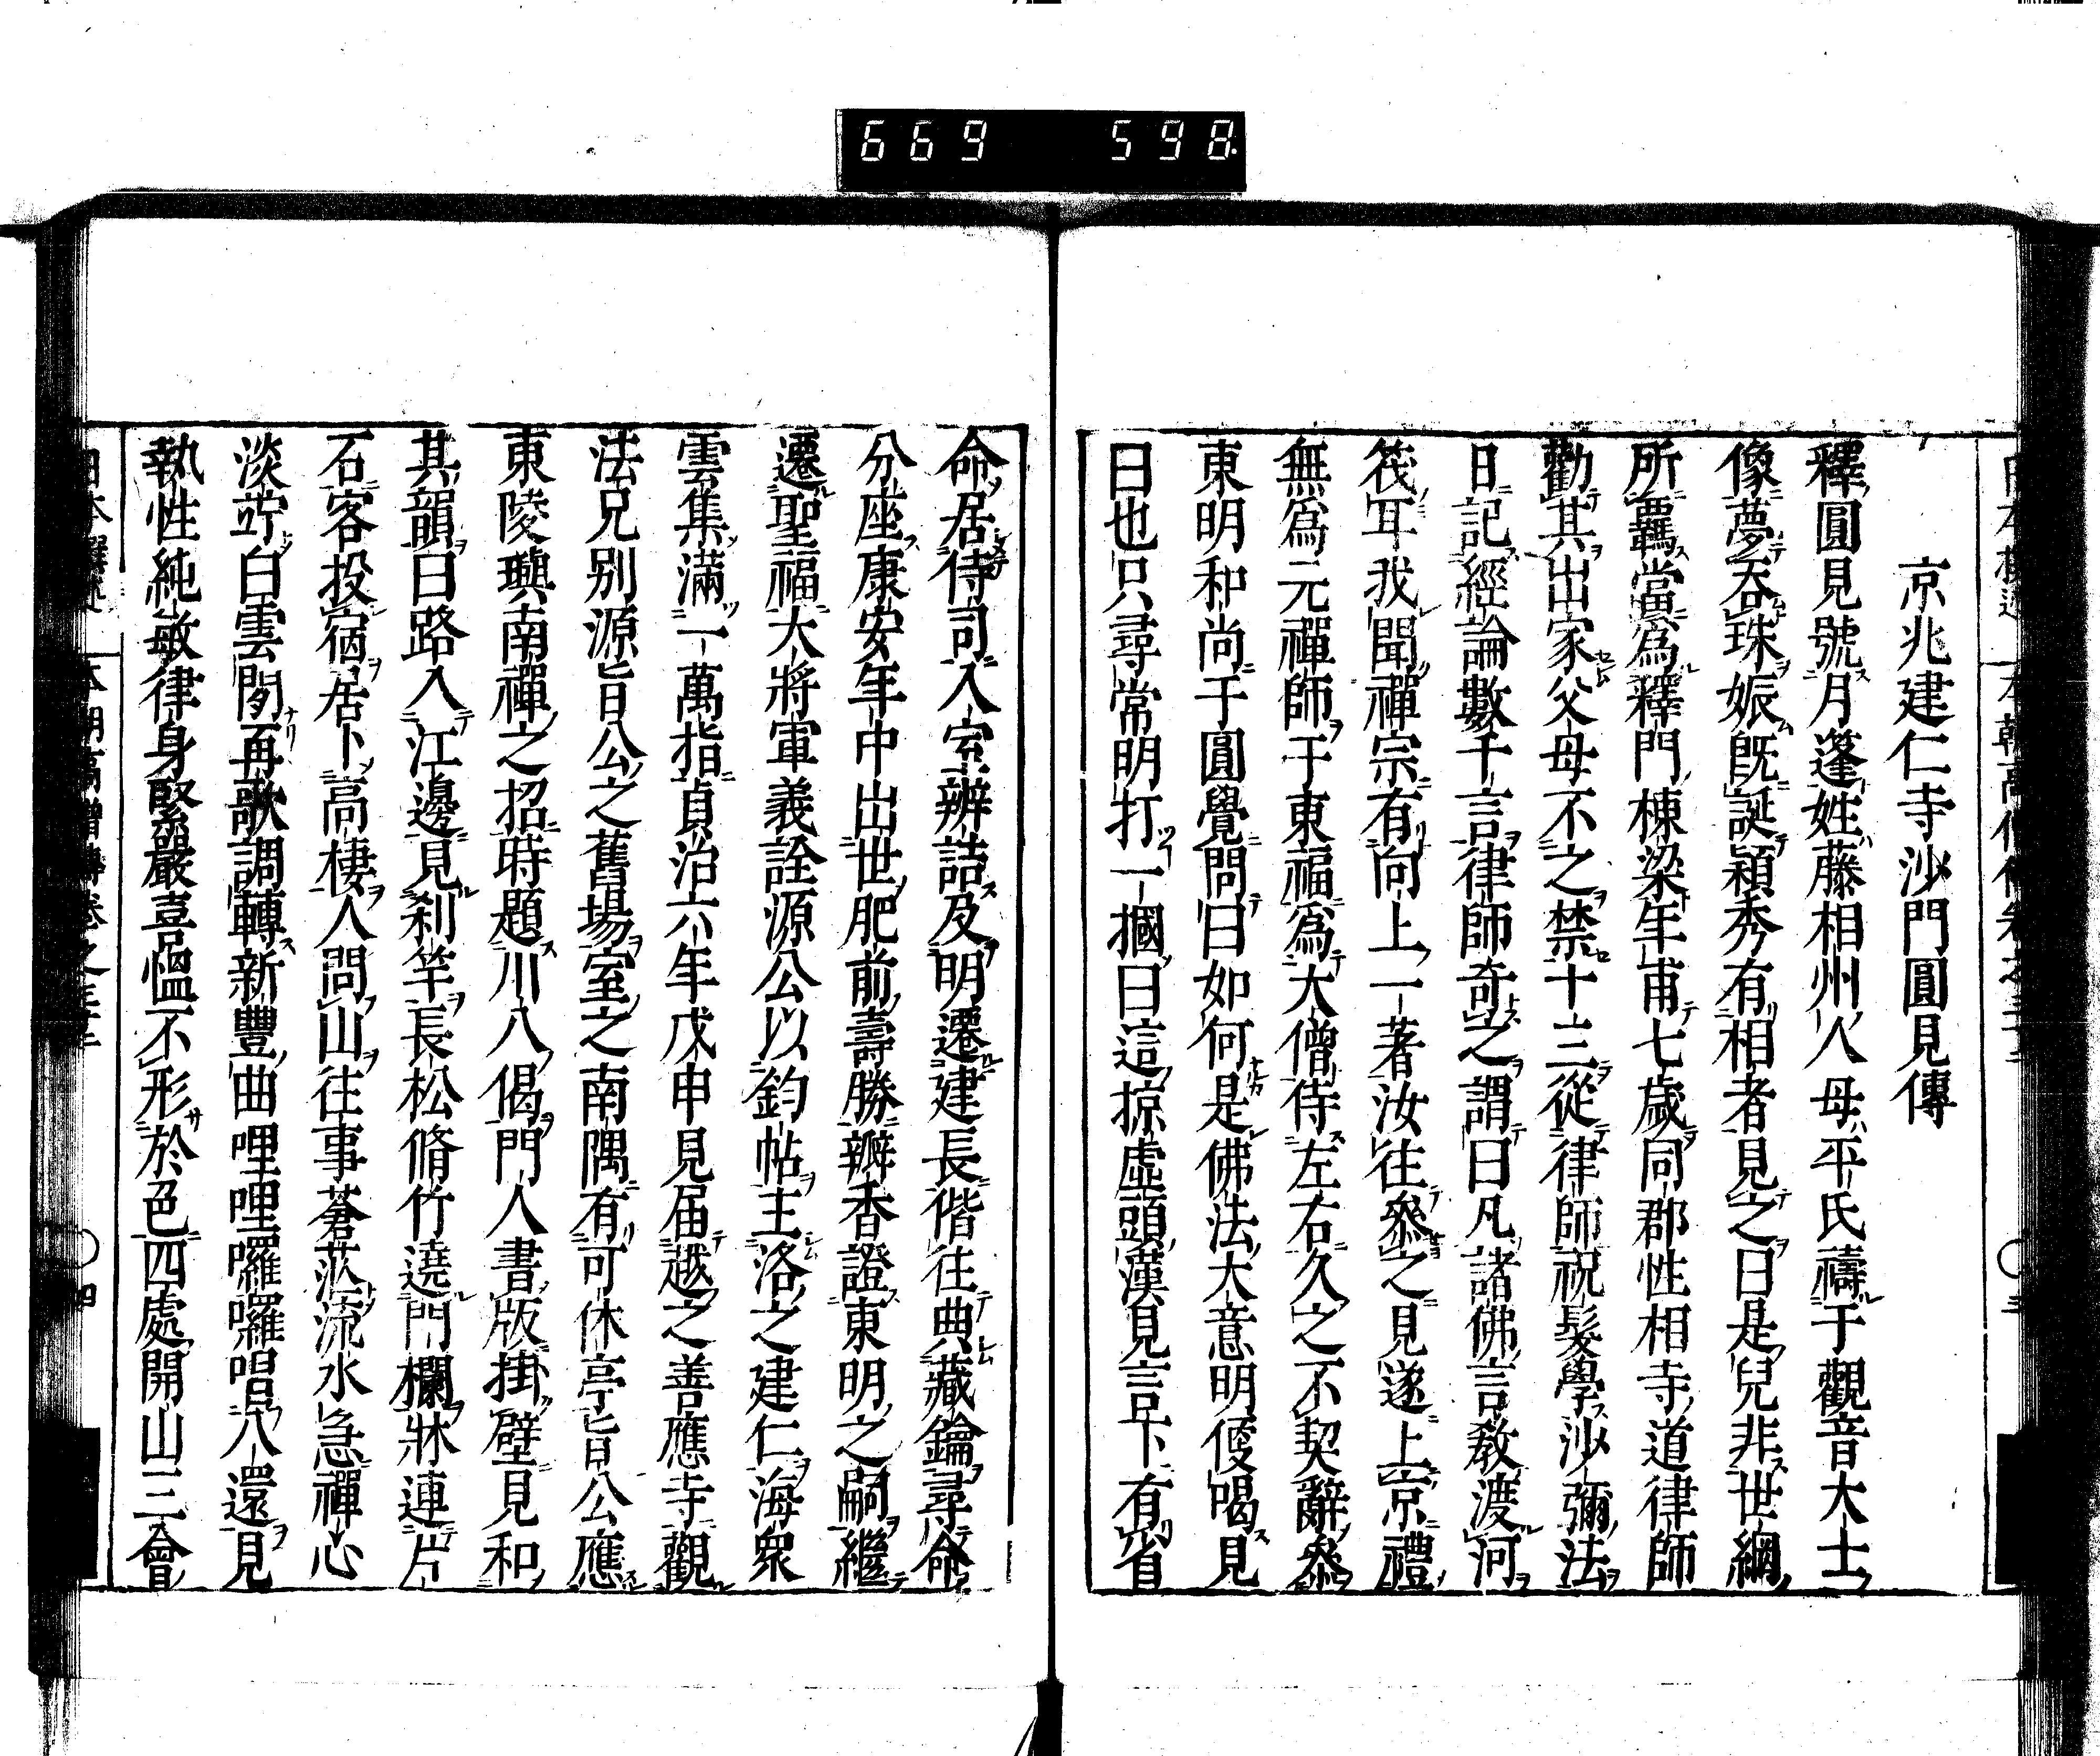 669 598
京兆建仁寺沙門圓見傳
釋圓見號月蓬姓藤相州人母平氏禱于觀音大士
像夢吞珠娠既誕穎秀有相者見之曰是兒非世網
所羈當爲釋門棟梁年甫七歳同郡性相寺道律師
勸其出家父母不之禁十三從律師祝髮學沙彌法
日記經論數千言律師奇之謂曰凡諸佛言教渡河
筏耳我聞禪宗有向上一著汝往參之見遂上京禮
無爲元禪師于東福爲大僧侍左右久之不契辭參
東明和尚于圓覺問曰如何是佛法大意明便喝見
曰也只尋常明打一摑曰這掠虛頭漢見言下有省
命居侍司入室辨詰及明遷建長偕往典藏鑰尋命
分座康安年中出世肥前壽勝瓣香證東明之嗣繼
遷聖福大將軍義詮源公以鈞帖主洛之建仁海衆
雲集滿一萬指貞治六年戊申見届越之善應寺觀
法兄別源旨公之舊場室之南隅有可休亭旨公應
東陵璵南禪之招時題川八偈門人書版掛壁見和
其韻曰路入江邊見刹竿長松脩竹遶門欄牀連片
石客投宿居卜高棲人問山往事蒼茫流水急禪心
淡竚白雲閑再歌調轉新豐曲哩哩囉囉唱八還見
執性純敏律身堅嚴喜慍不形於色四處開山三會
四